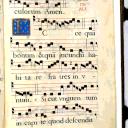 culorum Amen.
E cce quā
bonum & quā iucundū ha
bitare fratres in v
num. Sicut unguen tum
in capite quod descendit